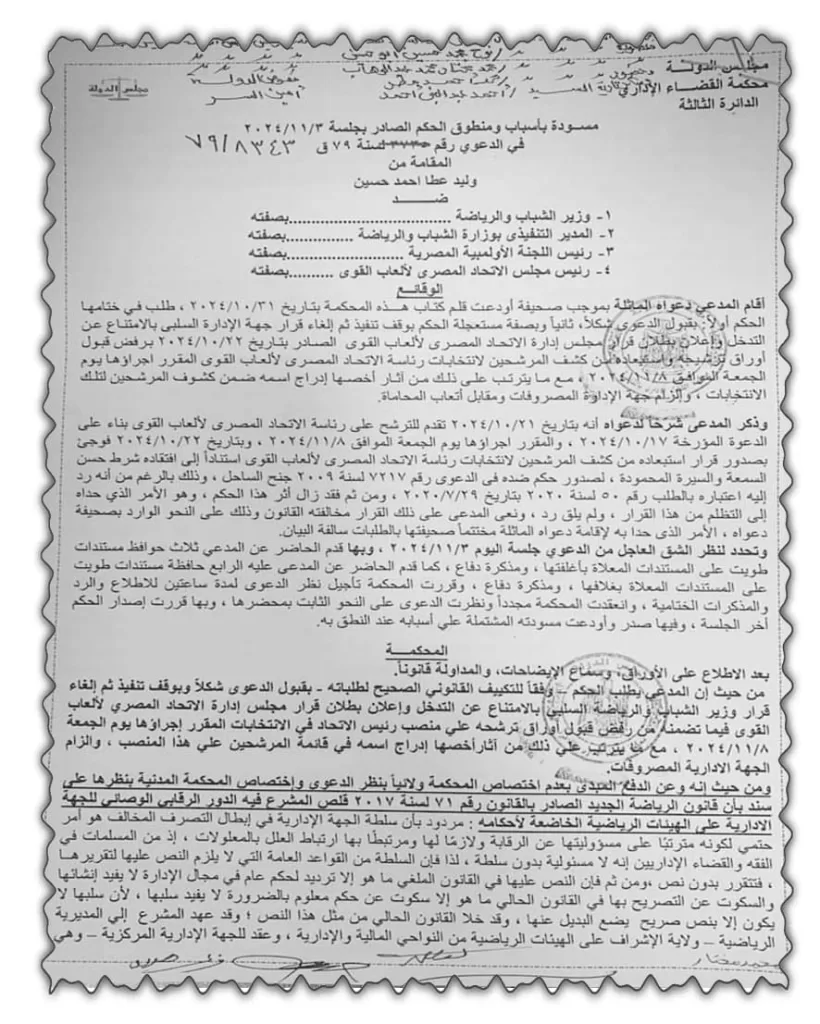 مجلس الدولة
محكمة القضاء الإداري
الدائرة الثالثة
مجلس الدولة
أمين السر
مسودة بأسباب ومنطوق الحكم الصادر بجلسة ٢٠٢٤/١١/٣
في الدعوي رقم لسنة ٧٩ ق ٧٩/٨٣٤٣
المقامة من
وليد عطا احمد حسين
ضــــــد
١- وزير الشباب والرياضة ................................بصفته
٢- المدير التنفيذى بوزارة الشباب والرياضة ................بصفته
٣- رئيس اللجنة الأولمبية المصرية ............................بصفته
٤- رئيس مجلس الاتحاد المصرى لألعاب القوى ..........بصفته
الوقائع
أقام المدعي دعواه الماثلة بموجب صحيفة أودعت قلم كتاب هذه المحكمة بتاريخ ٢٠٢٤/١٠/٣١ ، طلب في ختامها
الحكم أولاً: بقبول الدعوى شكلاً، ثانياً وبصفة مستعجلة الحكم بوقف تنفيذ ثم إلغاء قرار جهة الإدارة السلبى بالامتناع عن
التدخل وإعلان بطلان قرار مجلس إدارة الاتحاد المصرى لألعاب القوى الصادر بتاريخ ٢٠٢٤/١٠/٢٢ برفض قبول
أوراق ترشيحه واستبعاده من كشف المرشحين لانتخابات رئاسة الاتحاد المصرى لألعاب القوى المقرر اجراؤها يوم
الجمعة الموافق ٢٠٢٤/١١/٨ ، مع ما يترتب على ذلك من آثار أخصها إدراج اسمه ضمن كشوف المرشحين لتلك
الانتخابات ، وإلزام جهة الإدارة المصروفات ومقابل أتعاب المحاماة.
وذكر المدعى شرحاً لدعواه أنه بتاريخ ٢٠٢٤/١٠/٢١ تقدم للترشح على رئاسة الاتحاد المصرى لألعاب القوى بناء على
الدعوة المؤرخة ٢٠٢٤/١٠/١٧ ، والمقرر اجراؤها يوم الجمعة الموافق ٢٠٢٤/١١/٨ ، وبتاريخ ٢٠٢٤/١٠/٢٢ فوجئ
بصدور قرار استبعاده من كشف المرشحين لانتخابات رئاسة الاتحاد المصرى لألعاب القوى استناداً إلى افتقاده شرط حسن
السمعة والسيرة المحمودة ، لصدور حكم ضده فى الدعوى رقم ٧٢١٧ لسنة ٢٠٠٩ جنح الساحل ، وذلك بالرغم من أنه رد
إليه اعتباره بالطلب رقم ٥٠ لسنة ٢٠٢٠ بتاريخ ٢٠٢٠/٧/٢٩ ، ومن ثم فقد زال أثر هذا الحكم ، وهو الأمر الذي حداه
إلى التظلم من هذا القرار ، ولم يلق رد ، ونعى المدعى على ذلك القرار مخالفته القانون وذلك على النحو الوارد بصحيفة
دعواه ، الأمر الذى حدا به لإقامة دعواه الماثلة مختتماً صحيفتها بالطلبات سالفة البيان.
وتحدد لنظر الشق العاجل من الدعوي جلسة اليوم ٢٠٢٤/١١/٣ ، وبها قدم الحاضر عن المدعي ثلاث حوافظ مستندات
طويت على المستندات المعلاة بأغلفتها ، ومذكرة دفاع ، كما قدم الحاضر عن المدعى عليه الرابع حافظة مستندات طويت
على المستندات المعلاة بغلافها ، ومذكرة دفاع ، وقررت المحكمة تأجيل نظر الدعوى لمدة ساعتين للاطلاع والرد
والمذكرات الختامية ، وانعقدت المحكمة مجدداً ونظرت الدعوى على النحو الثابت بمحضرها ، وبها قررت إصدار الحكم
أخر الجلسة ، وفيها صدر وأودعت مسودته المشتملة علي أسبابه عند النطق به.
المحكمــة
بعد الاطلاع على الأوراق، وسماع الإيضاحات، والمداولة قانوناً.
من حيث إن المدعي يطلب الحكم – وفقاً للتكييف القانوني الصحيح لطلباته - بقبول الدعوى شكلاً وبوقف تنفيذ ثم إلغاء
قرار وزير الشباب والرياضة السلبي بالامتناع عن التدخل وإعلان بطلان قرار مجلس إدارة الاتحاد المصري لألعاب
القوى فيما تضمنه من رفض قبول أوراق ترشحه علي منصب رئيس الاتحاد في الانتخابات المقرر إجراؤها يوم الجمعة
٢٠٢٤/١١/٨ ، مع ما يترتب علي ذلك من آثار أخصها إدراج اسمه في قائمة المرشحين علي هذا المنصب ، والزام
الجهة الادارية المصروفات.
ومن حيث إنه وعن الدفع المبدى بعدم اختصاص المحكمة ولائياً بنظر الدعوي وإختصاص المحكمة المدنية بنظرها علي
سند بأن قانون الرياضة الجديد الصادر بالقانون رقم ٧١ لسنة ٢٠١٧ قلص المشرع فيه الدور الرقابي الوصائي للجهة
الادارية على الهيئات الرياضية الخاضعة لأحكامه : مردود بأن سلطة الجهة الإدارية في إبطال التصرف المخالف هو أمر
حتمي لكونه مترتبًا على مسؤوليتها عن الرقابة ولازمًا لها ومرتبطًا بها ارتباط العلل بالمعلولات ، إذ من المسلمات في
الفقه والقضاء الإداريين إنه لا مسئولية بدون سلطة ، لذا فإن السلطة من القواعد العامة التي لا يلزم النص عليها لتقريرها
، فتتقرر بدون نص ،ومن ثم فإن النص عليها في القانون الملغي ما هو إلا ترديد لحكم عام في مجال الإدارة لا يفيد إنشائها
والسكوت عن التصريح بها في القانون الحالي ما هو إلا سكوت عن حكم معلوم بالضرورة لا يفيد سلبها ، لأن سلبها لا
يكون إلا بنص صريح يضع البديل عنها ، وقد خلا القانون الحالي من مثل هذا النص ؛ وقد عهد المشرع إلي المديرية
الرياضية – ولاية الإشراف على الهيئات الرياضية من النواحي المالية والإدارية ، وعقد للجهة الإدارية المركزية – وهي